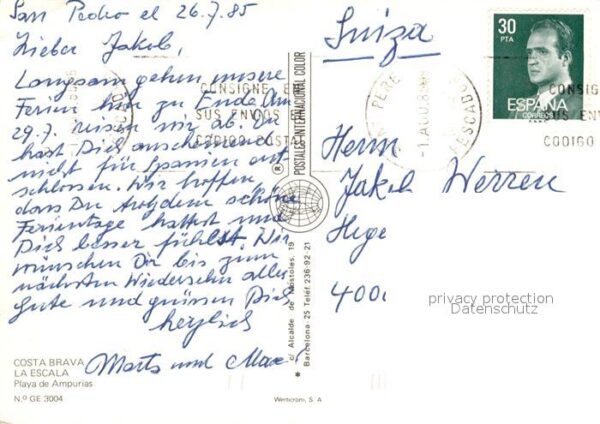 San Pedro el 26.7.85
Lieber Jakob,
Langsam gehen unsere
Ferien hin zu Ende Am
29.7. reisen wir ab. Du
hast Dich anscheinend
nicht für Spanien ent
schlossen. Wir hoffen,
dass Du trotzdem schöne
Ferientage hattest und
Dich besser fühlst. Wir
wünschen Dir bis zum
nächsten Wiedersehn alles
Gute und grüssen Dich
herzlich
Marts und Max
COSTA BRAVA
LA ESCALA
Playa de Ampurias
N.º GE 3004
POSTALES INTERNACIONAL COLOR
®
* c/ Alcalde de Móstoles, 19
Barcelona - 25 Teléf. 236-92-21
Werticroms, S. A
Suiza
30
PTA
ESPAÑA
CORREOS
CONSIGNE E
SUS ENVIOS E
CODIGO POSTAL
CONSIG
SUS ENV
CODIGO
Herrn
Jakob Werren
Hege
4000
privacy protection
Datenschutz